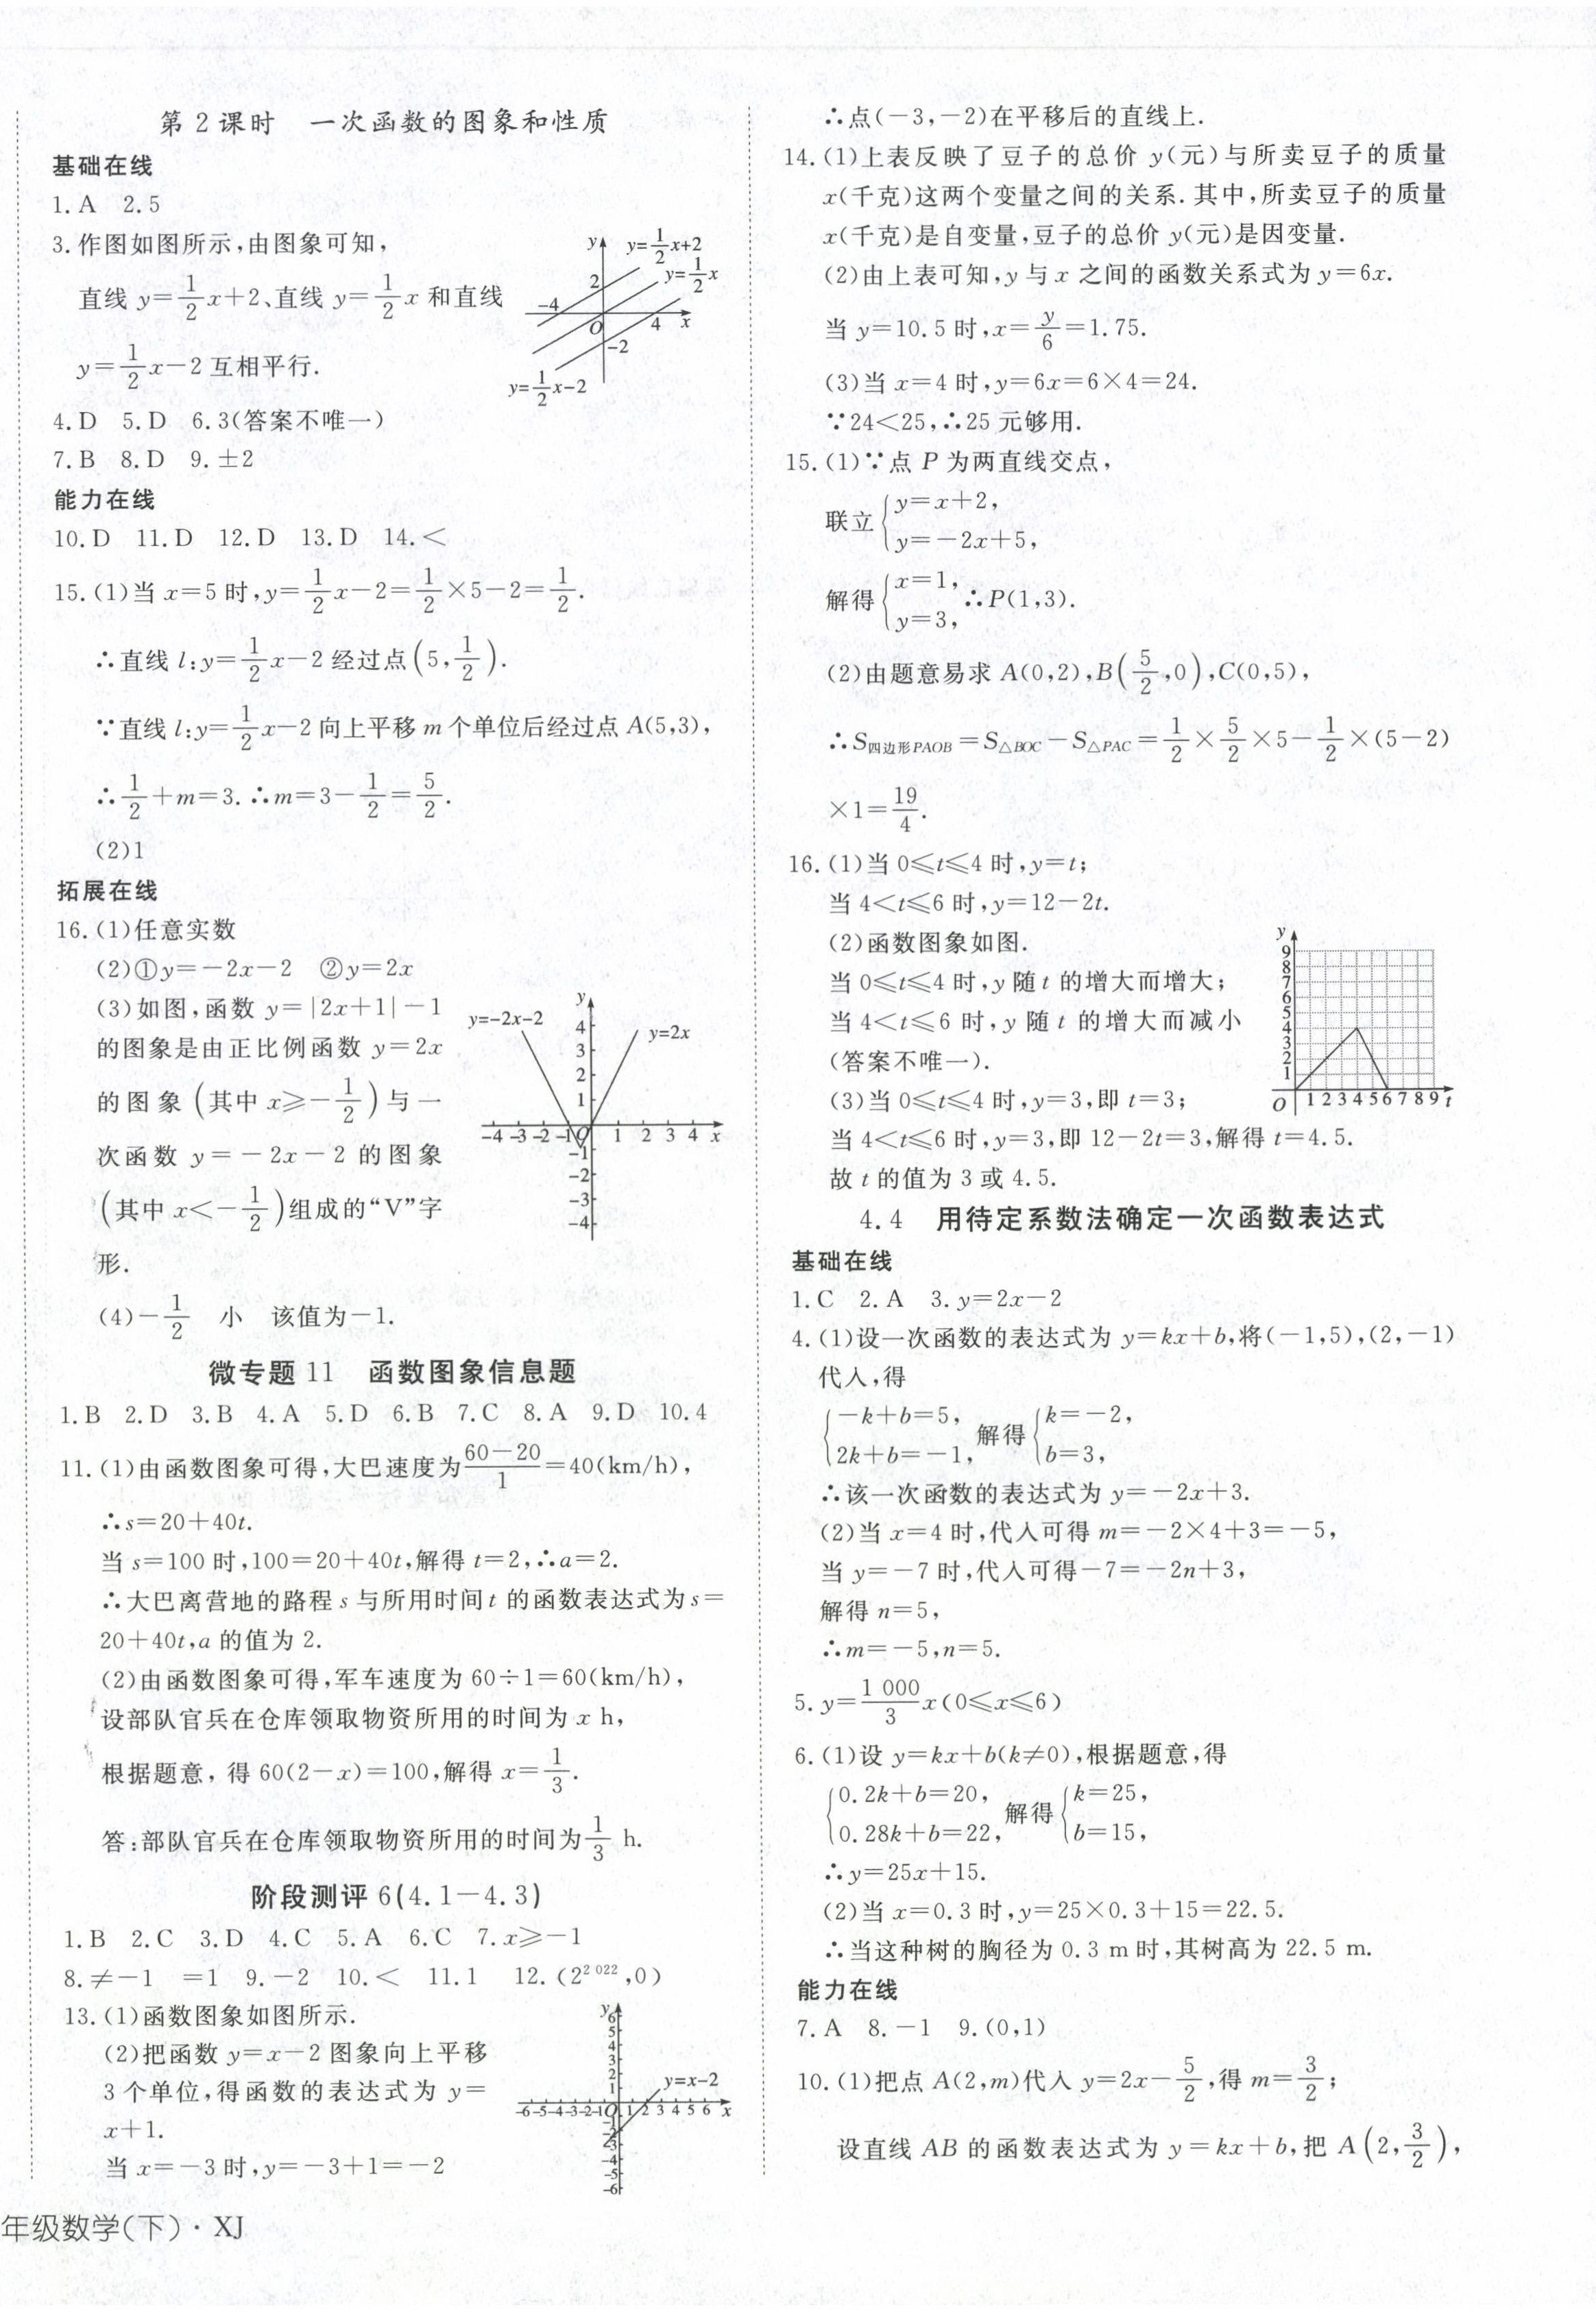 第2课时　一次函数的图象和性质
基础在线
1.A　2.5
3.作图如图所示,由图象可知,
直线 y=1/2x+2、直线 y=1/2x 和直线
y=1/2x−2 互相平行.
y
y=1/2x+2
y=1/2x
2
−4
O
4
x
−2
y=1/2x−2
4.D　5.D　6.3(答案不唯一)
7.B　8.D　9.±2
能力在线
10.D　11.D　12.D　13.D　14.<
15.(1)当 x=5 时,y=1/2x−2=1/2×5−2=1/2.
∴直线 l:y=1/2x−2 经过点(5,1/2).
∵直线 l:y=1/2x−2 向上平移 m 个单位后经过点 A(5,3),
∴1/2+m=3.∴m=3−1/2=5/2.
(2)1
拓展在线
16.(1)任意实数
(2)①y=−2x−2　②y=2x
(3)如图,函数 y=|2x+1|−1
的图象是由正比例函数 y=2x
的图象(其中 x≥−1/2)与一
次函数 y=−2x−2 的图象
(其中 x<−1/2)组成的“V”字
形.
y
y=−2x−2
y=2x
4
3
2
1
−4 −3 −2 −1 O 1 2 3 4 x
−1
−2
−3
−4
(4)−1/2　小　该值为−1.
微专题11　函数图象信息题
1.B　2.D　3.B　4.A　5.D　6.B　7.C　8.A　9.D　10.4
11.(1)由函数图象可得,大巴速度为(60−20)/1=40(km/h),
∴s=20+40t.
当 s=100 时,100=20+40t,解得 t=2,∴a=2.
∴大巴离营地的路程 s 与所用时间 t 的函数表达式为 s=
20+40t,a 的值为 2.
(2)由函数图象可得,军车速度为 60÷1=60(km/h),
设部队官兵在仓库领取物资所用的时间为 x h,
根据题意，得 60(2−x)=100,解得 x=1/3.
答:部队官兵在仓库领取物资所用的时间为1/3 h.
阶段测评6(4.1−4.3)
1.B　2.C　3.D　4.C　5.A　6.C　7.x≥−1
8.≠−1　=1　9.−2　10.<　11.1　12.(2^2 022,0)
13.(1)函数图象如图所示.
(2)把函数 y=x−2 图象向上平移
3 个单位,得函数的表达式为 y=
x+1.
当 x=−3 时,y=−3+1=−2
y
6
5
4
3
2
1
y=x−2
−6−5−4−3−2−1 O 1 2 3 4 5 6 x
−1
−2
−3
−4
−5
−6
年级数学(下)·XJ
∴点(−3,−2)在平移后的直线上.
14.(1)上表反映了豆子的总价 y(元)与所卖豆子的质量
x(千克)这两个变量之间的关系.其中,所卖豆子的质量
x(千克)是自变量,豆子的总价 y(元)是因变量.
(2)由上表可知,y 与 x 之间的函数关系式为 y=6x.
当 y=10.5 时,x=y/6=1.75.
(3)当 x=4 时,y=6x=6×4=24.
∵24<25,∴25 元够用.
15.(1)∵点 P 为两直线交点，
联立{y=x+2,
y=−2x+5,
解得{x=1,
y=3,
∴P(1,3).
(2)由题意易求 A(0,2),B(5/2,0),C(0,5),
∴S四边形PAOB=S△BOC−S△PAC=1/2×5/2×5−1/2×(5−2)
×1=19/4.
16.(1)当 0≤t≤4 时,y=t;
当 4<t≤6 时,y=12−2t.
(2)函数图象如图.
当 0≤t≤4 时,y 随 t 的增大而增大;
当 4<t≤6 时,y 随 t 的增大而减小
(答案不唯一).
(3)当 0≤t≤4 时,y=3,即 t=3;
y
9
8
7
6
5
4
3
2
1
O 1 2 3 4 5 6 7 8 9 t
当 4<t≤6 时,y=3,即 12−2t=3,解得 t=4.5.
故 t 的值为 3 或 4.5.
4.4　用待定系数法确定一次函数表达式
基础在线
1.C　2.A　3.y=2x−2
4.(1)设一次函数的表达式为 y=kx+b,将(−1,5),(2,−1)
代入,得
{−k+b=5,
2k+b=−1,
解得{k=−2,
b=3,
∴该一次函数的表达式为 y=−2x+3.
(2)当 x=4 时,代入可得 m=−2×4+3=−5,
当 y=−7 时,代入可得−7=−2n+3,
解得 n=5,
∴m=−5,n=5.
5.y=1 000/3x(0≤x≤6)
6.(1)设 y=kx+b(k≠0),根据题意,得
{0.2k+b=20,
0.28k+b=22,
解得{k=25,
b=15,
∴y=25x+15.
(2)当 x=0.3 时,y=25×0.3+15=22.5.
∴当这种树的胸径为 0.3 m 时,其树高为 22.5 m.
能力在线
7.A　8.−1　9.(0,1)
10.(1)把点 A(2,m)代入 y=2x−5/2,得 m=3/2;
设直线 AB 的函数表达式为 y=kx+b,把 A(2,3/2),